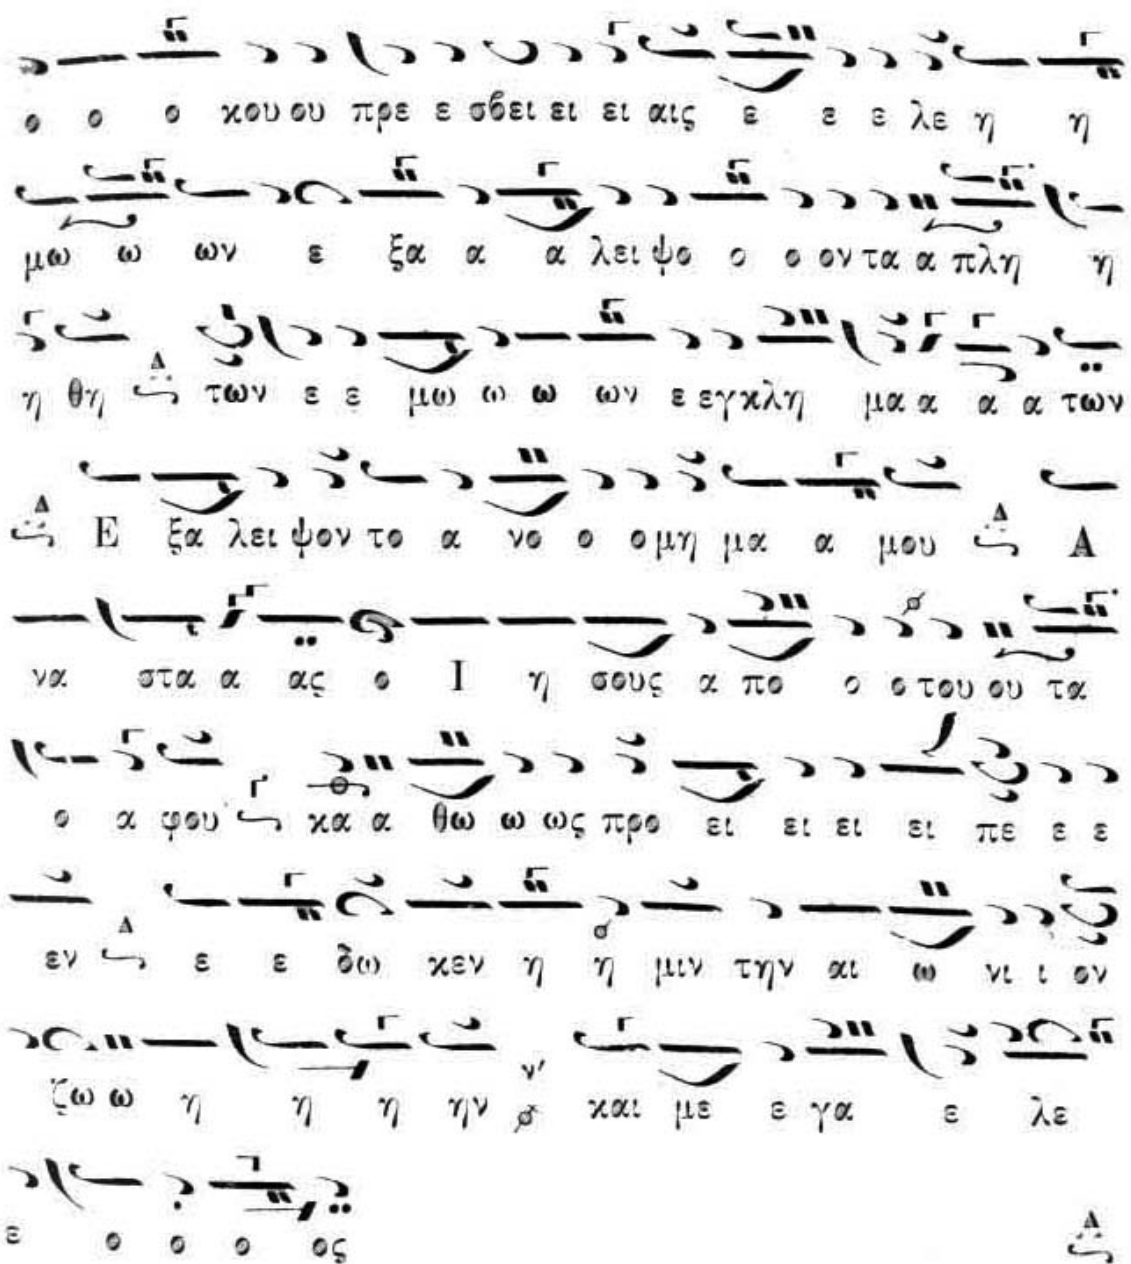 ο ο ο κου ου πρε ε σβει ει ει αις ε ε ε λε η η
μω ω ων ε ξα α α λει ψο ο ο ον τα α πλη η
η θη Δ των ε ε μω ω ω ων ε εγκλη μα α α α των
Δ Ε ξα λει ψον το α νο ο ο μη μα α μου Δ Α
να στα α ας ο Ι η σους α πο ο ο του ου τα
ο α φου Γ κα α θω ω ως προ ει ει ει ει πε ε ε
εν Δ ε ε δω κεν η η μιν την αι ω νι ι ον
ζω ω η η η ην ν' και με ε γα ε λε
ε ο ο ο ος Δ